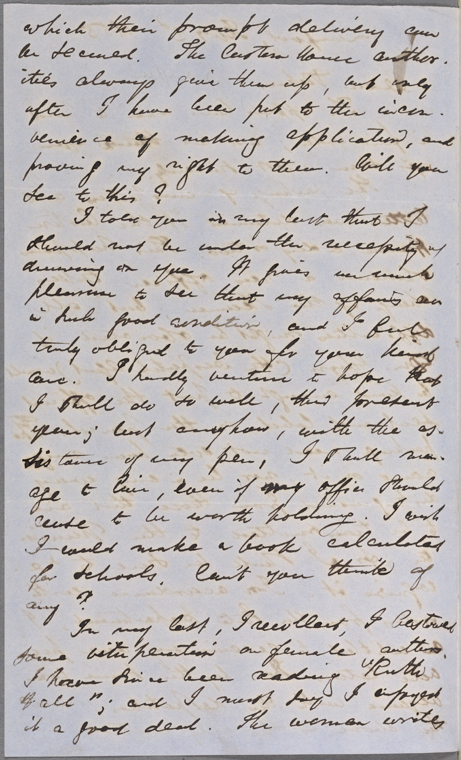 which their prompt delivery can
be secured. The Custom House author-
ities always give them up, but only
after I have been put to the incon-
venience of making application, and
proving my right to them. Will you
see to this?
I told you in my last that I
should not be under the necessity of
drawing on you. It gives me much
pleasure to see that my affairs are
in such good condition, and I feel
truly obliged to you for your kind
care. I hardly venture to hope that
I shall do so well, this present
year; but anyhow, with the as-
sistance of my pen, I shall man-
age to live, even if my office should
cease to be worth holding. I wish
I could make a book calculated
for schools. Can't you think of
any?
In my last, I recollect, I bestowed
some vituperation on female authors.
I have since been reading "Ruth
Hall"; and I must say I enjoyed
it a good deal. The woman writes